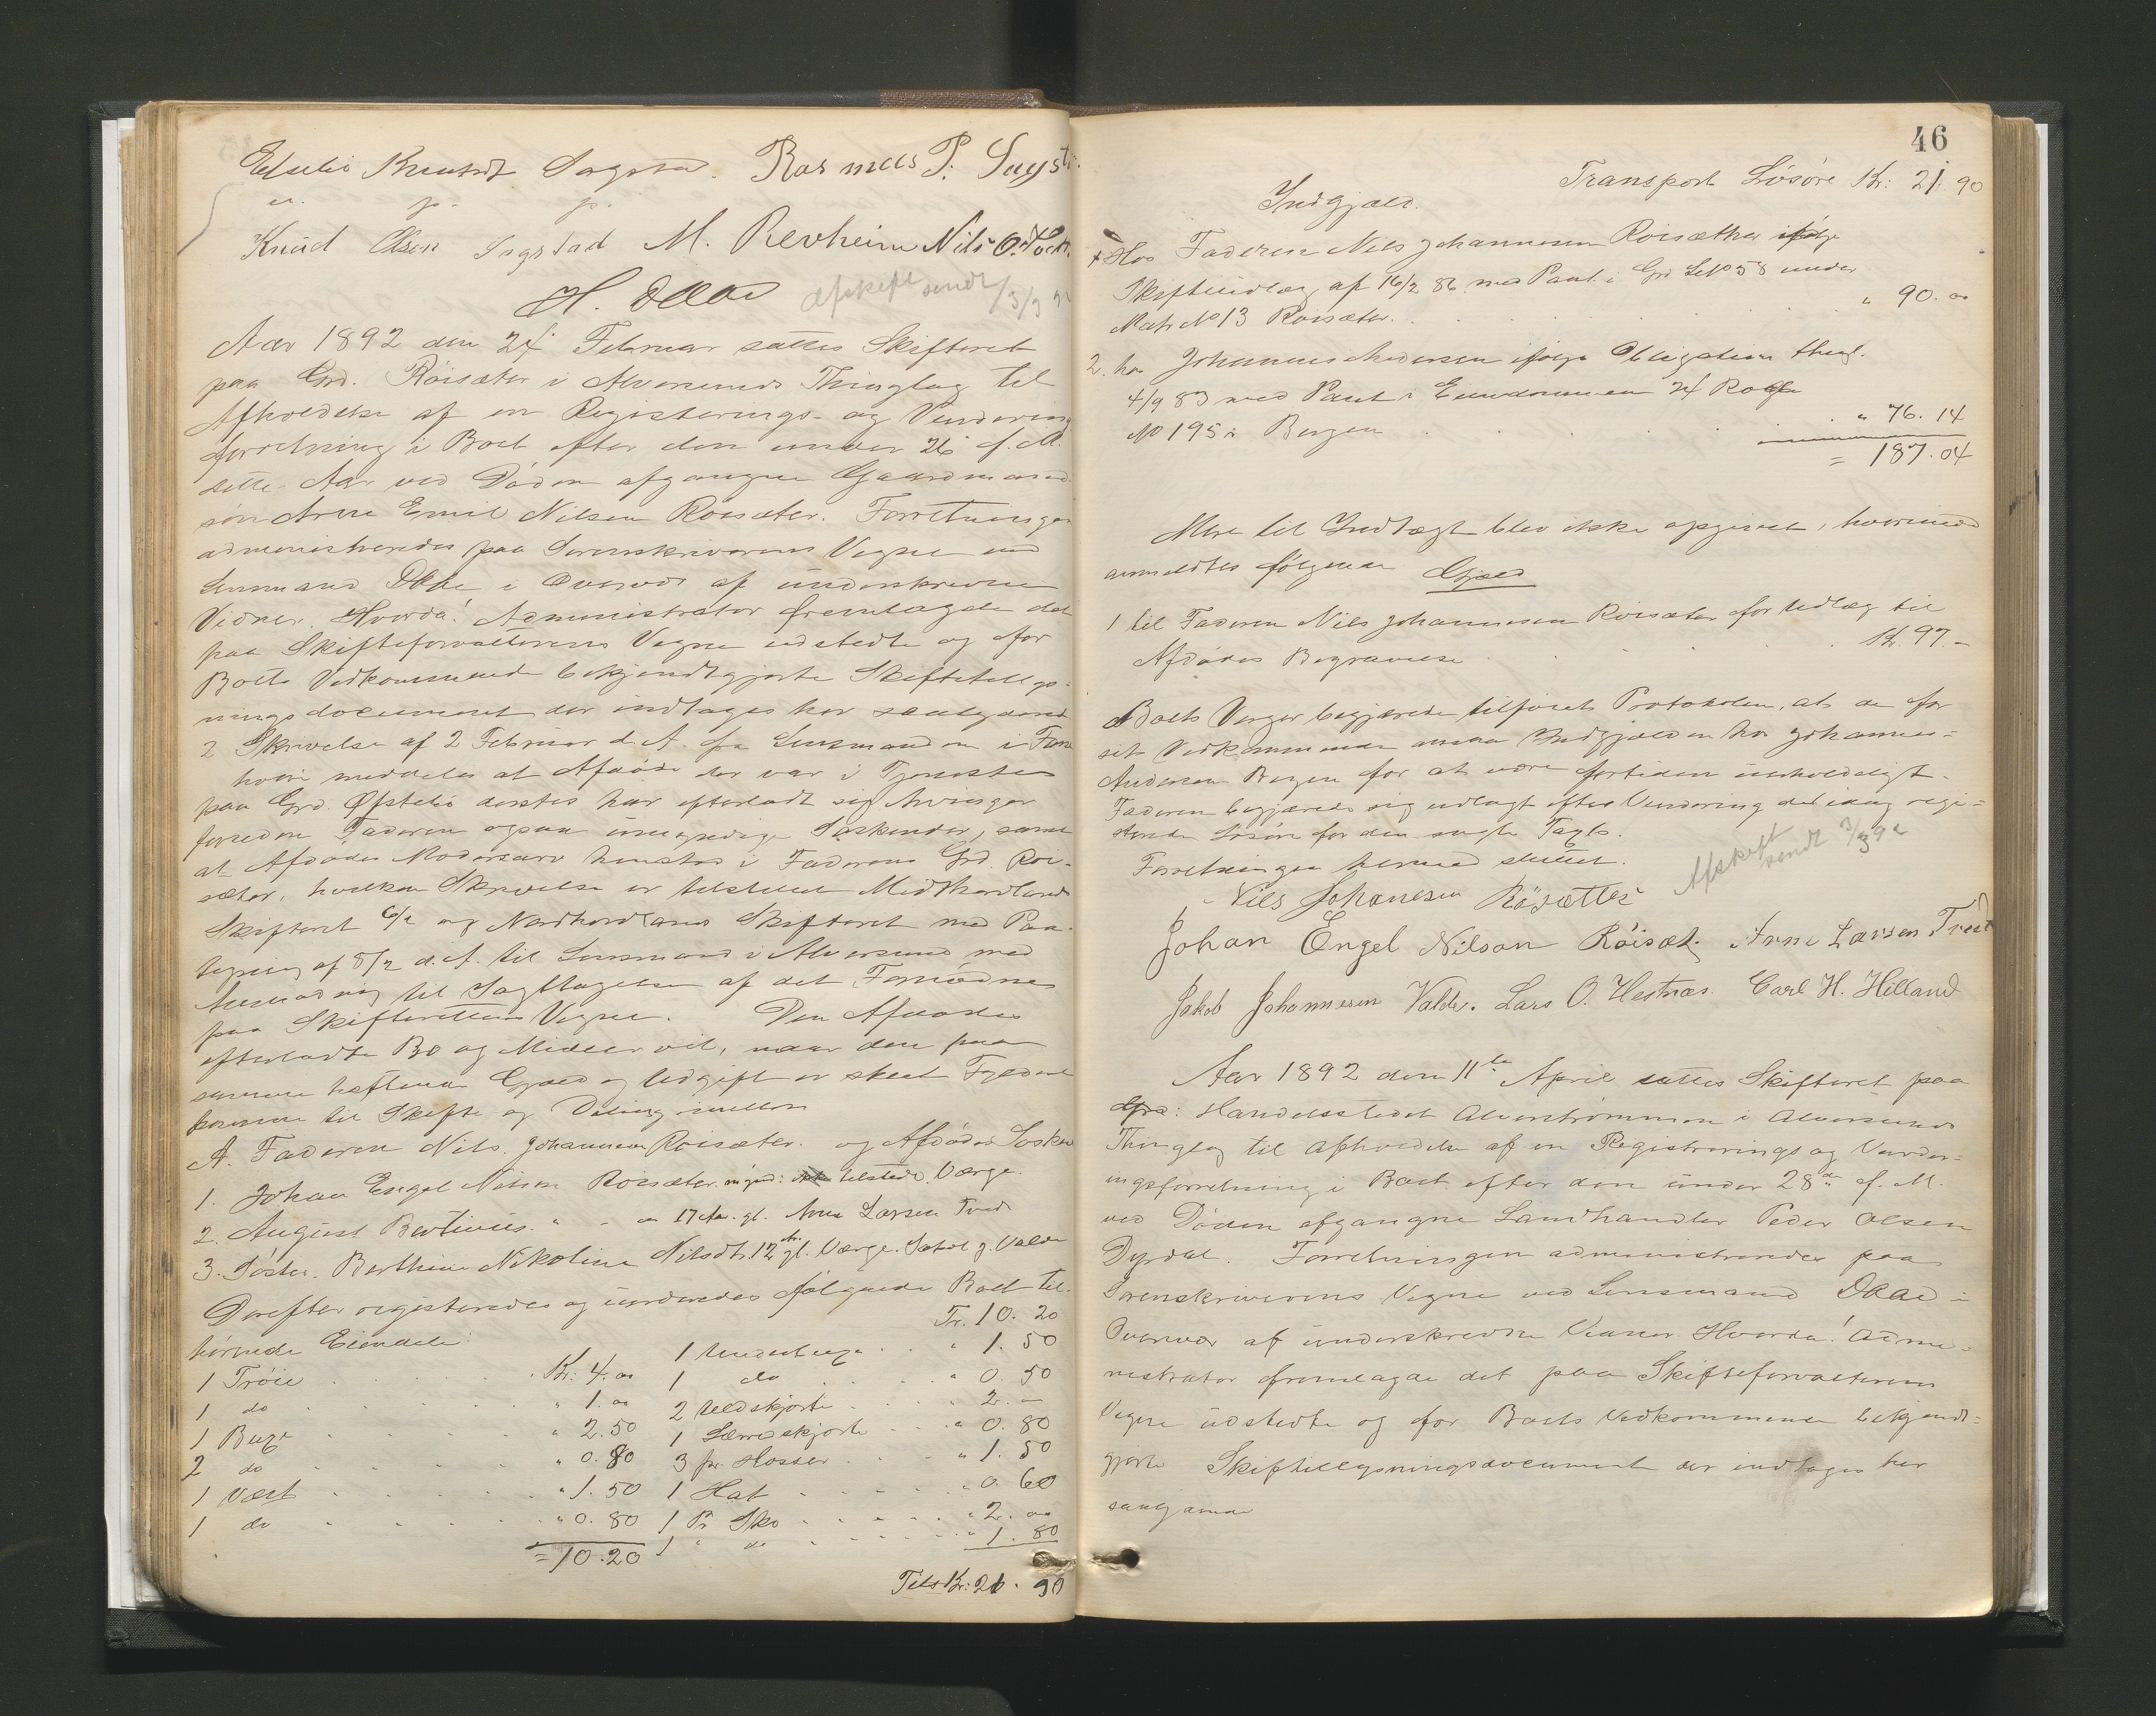 Knudsdt Sagstad. Rasmus P. Sags
m. p. p.
Knud Olsen Sagstad M. Revheim Nils O.
H. Dahl Afskrift sendt /3/3 92
Aar 1892 den 24 Februar sattes Skifteret
paa Grd. Röisæter i Alversunds Thinglag til
Afholdelse af en Registerings- og Vurderings
forretning i Boet efter den under 26 f. M.
dette Aar ved Döden afgangne Gaardmands
sön Arne Emil Nilsen Röisæter. Forretningen
administreredes paa Sorenskriverens Vegne ved
Lensmand Dahl i Overvær af underskrevne
Vidner. Hvorda! Administrator fremlagde det
paa Skifteforvalterens Vegne udstedte og for
Boets Vedkommende bekjendtgjorte Skiftetillys-
ningsdocument der indtages her saalydende
2 Skrivelse af 2 Februar d. A. fra Lensmanden i Fane
hvori meddeles at Afdöde der var i Tjeneste
paa Grd. Öfstebö dersteds har efterladt sig Arvinger
foruden Faderen ogsaa umyndige Söskender, samt
at Afdödes Mödrearv henstaar i Faderens Grd. Röi-
sæter, hvilken Skrivelse er tilstillet Midthordlands
Skifteret 6/2 og Nordhordlands Skifteret med Paa-
tegning af 8/2 d. A. til Lensmand i Alversund med
Anmodning til Iagttagelse af det Fornödne
paa Skifterettens Vegne. Den Afdödes
efterladte Bo og Midler vil, naar den paa
samme heftende Gjæld og Udgift er skeet Fyldest
komme til Skifte og Deling imellem
A. Faderen Nils Johannesen Röisæter. og Afdödes Söskend
1. Johan Engel Nilsen Röisæter. mynd: tilstede. Værge.
2. August Bertinius " - " 17 Aar. gl. Arne Larsen Tveit
3. Söster. Berthine Nikoline Nilsdtr. 12 Ar. gl. Værge. Jakob J. Valde
Derefter registeredes og vurderedes fölgende Boet til-
hörende Eiendele: Tr. 10. 20
1 Tröie . . . Kr: 4. oo 1 Underbuxe . . " 1. 50
1 do . . . " 1. oo 1 do . . " 0. 50
1 Buxe . . . " 2. 50 2 Uldskjorte . . " 2. -
2 do . . . " 0. 80 1 Lærredskjorte . . " 0. 80
1 Væst . . . " 1. 50 3 pr. Hosser . . " 1. 50
1 do . . . " 0. 80 1 Hat . . " 0. 60
= 10. 20 1 Pr Sko . . " 2. oo
1 " do . . " 1. 80
Tils Kr: 21. 90
46
Transport Lösöre Kr: 21. 90
Indgjæld.
1 Hos Faderen Nils Johannesen Röisæther ifölge
Skifteudlæg af 16/2 86 med Pant i Grd LNo 58 under
Matr No 13 Röisæter. . . . " 90. oo
2. hos Johannes Andersen ifölge Obligation thingl.
4/9 83 med Pant i Eiendommen 24 Rode
No 195 i Bergen . . . " 76. 14
= 187. 04
Mere til Indtægt blev ikke opgivet, hvorimod
anmeldtes fölgende Gjæld
1 til Faderen Nils Johannesen Röisæter for Udlæg til
Afdödes Begravelse . . . Kr. 97. -
Boets Verger begjærede tilfört Protokolen, at de for
sit Vedkommende ansaa Indgjælden hos Johannes
Andersen Bergen for at være fortiden uerholdeligt.
Faderen begjærede sig udlagt efter Vurdering det idag regi-
sterede Lösöre for den satte Taxt.
Forretningen hermed sluttet. Afskrift sendt 3/3 92
Nils Johanesen Rösætter
Johan Engel Nilson Röisæt. Arne Larsen Tveit
Jakob Johannesen Valde. Lars O. Hestnæs. Carl H. Hilland
Aar 1892 den 11te April sattes Skifteret paa
Grd: Handelsstedet Alverströmmen i Alversunds
Thinglag til Afholdelse af en Registrerings og Vurder-
ingsforretning i Boet efter den under 28de f. M.
ved Döden afgangne Landhandler Peder Olsen
Dyrdal. Forretningen administreredes paa
Sorenskriverens Vegne ved Lensmand Dahl i
Overvær af underskrevne Vidner. Hvorda! Admi-
nistrator fremlagde det paa Skifteforvalterens
Vegne udstedte og for Boets Vedkommende bekjendt-
gjorte Skiftetillysningsdocument der indtages her
saalydende